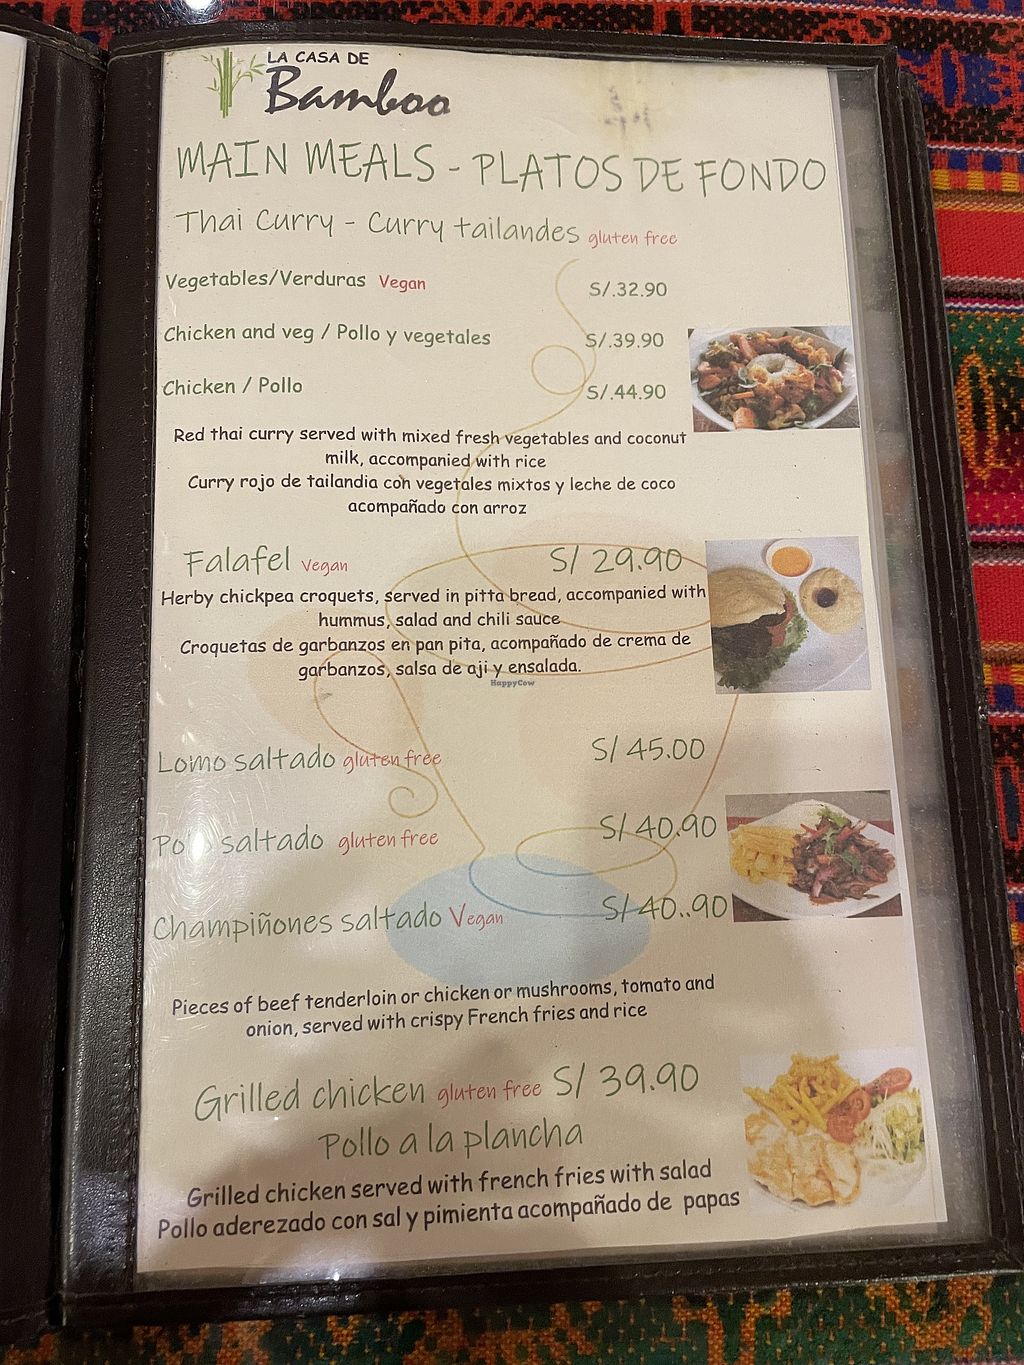 LA CASA DE
Bamboo
MAIN MEALS - PLATOS DE FONDO
Thai Curry - Curry tailandes gluten free
Vegetables/Verduras Vegan S/.32.90
Chicken and veg / Pollo y vegetales S/.39.90
Chicken / Pollo S/.44.90
Red thai curry served with mixed fresh vegetables and coconut
milk, accompanied with rice
Curry rojo de tailandia con vegetales mixtos y leche de coco
acompañado con arroz
Falafel Vegan S/ 29.90
Herby chickpea croquets, served in pitta bread, accompanied with
hummus, salad and chili sauce
Croquetas de garbanzos en pan pita, acompañado de crema de
garbanzos, salsa de aji y ensalada.
HappyCow
Lomo saltado gluten free S/ 45.00
Pollo saltado gluten free S/ 40.90
Champiñones saltado Vegan S/ 40..90
Pieces of beef tenderloin or chicken or mushrooms, tomato and
onion, served with crispy French fries and rice
Grilled chicken gluten free S/ 39.90
Pollo a la plancha
Grilled chicken served with french fries with salad
Pollo aderezado con sal y pimienta acompañado de papas